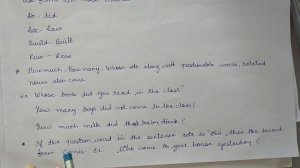 Do - did
See - Saw
Build - Built
Rise - Rose
* How much, How many, Whose etc along with questionable words, related
noun also come.
Ex Whose book did you read in the class?
How many boys did not come to the class?
How much milk did that baby drink?
* If the question word in the sentence acts as 'Who', then the second
form comes. Ex Who came to your house yesterday?